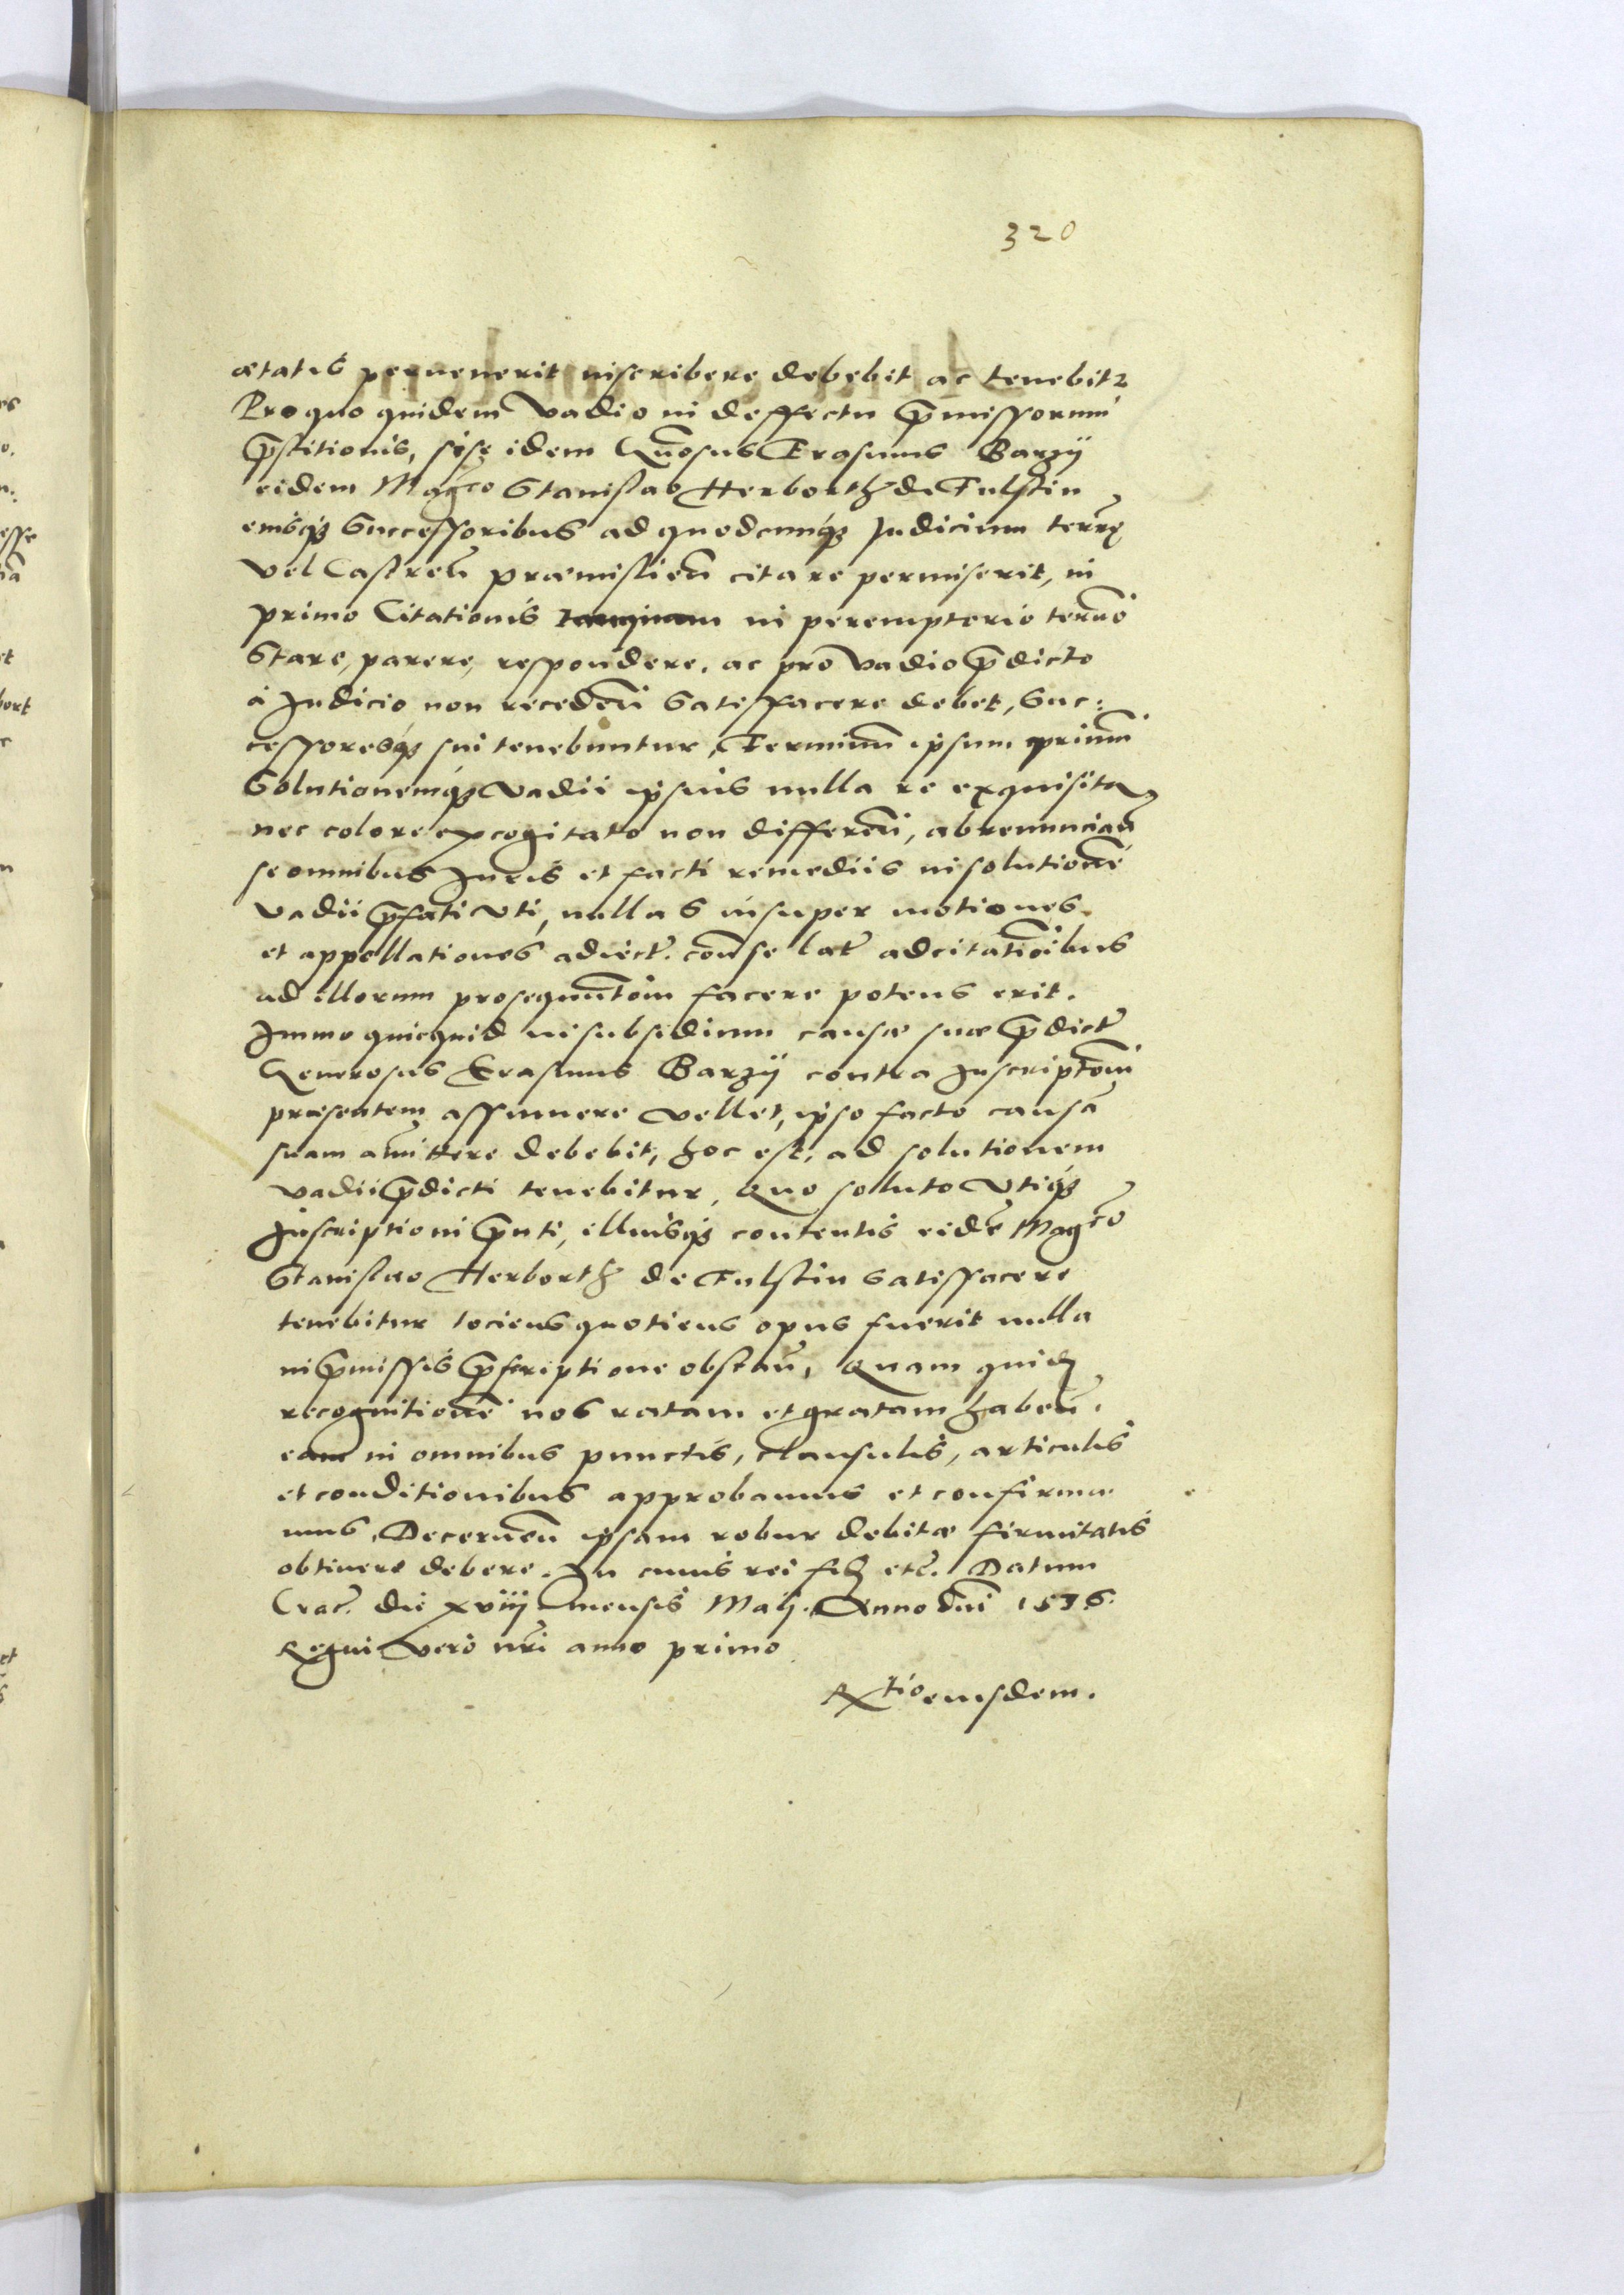 320
ætatis peruenerit inscribere debebit ac tenebitr
Pro quo quidem vadio in deffectu p̄missorum
p̄stitionis, si se idem Gn̄osus Erasmus Barzÿ
eidem Mag͞co Stanislao Herborth de Fulstin
eiusq3 Successoribus ad quodcunq3 Judicium terr̄e
vel Castren̄ præmislien̄ citare permiserit, in
primo Citationis tanquam in peremptorio termō
Stare, parere, respondere, ac pro vadio p̄dicto
à Judicio non receden̄ Satisfacere debet, Suc:
cessoresq3 sui tenebuntur, Terminū ipsum primū
Solutionemq3 vadii ipsius nulla re exquisita
nec colore excogitato non differen̄, abrenuncian̄
se omnibus Juris et facti remediis in solutionē
vadii p̄fati vti, nullas insuper motiones
et appellationes ad citatiōibus
ad illorum facere potens erit.
Immo quicquid in subsidium causæ suæ p̄dict̄
Generosus Erasmus Barzÿ contra Inscriptōm
præsentem assumere vellet, ipso facto causā
suam amittere debebit, hoc est, ad solutionem
vadii p̄dicti tenebitur, Quo soluto vtiq3
Inscriptioni p̄nti, illiusq3 contentis eidē Mag͞co
Stanislao Herborth de Fulstin satisfacere
tenebitur tociens quotiens opus fuerit nulla
in p̄missis p̄scriptione obstan̄, Quam quidē
recognitionē nos ratam et gratam haben̄.
eam in omnibus punctis, clausulis, articulis
et conditionibus approbamus et confirma
mus, Decernen̄ ipsam robur debitæ firmitatis
obtinere debere. In cuius rei fid etc̄. Datum
Crac̄. die xviij mensis Maij. Anno dn̄i 1576.
Regni vero nr̄i anno primo
Rtio eiusdem.